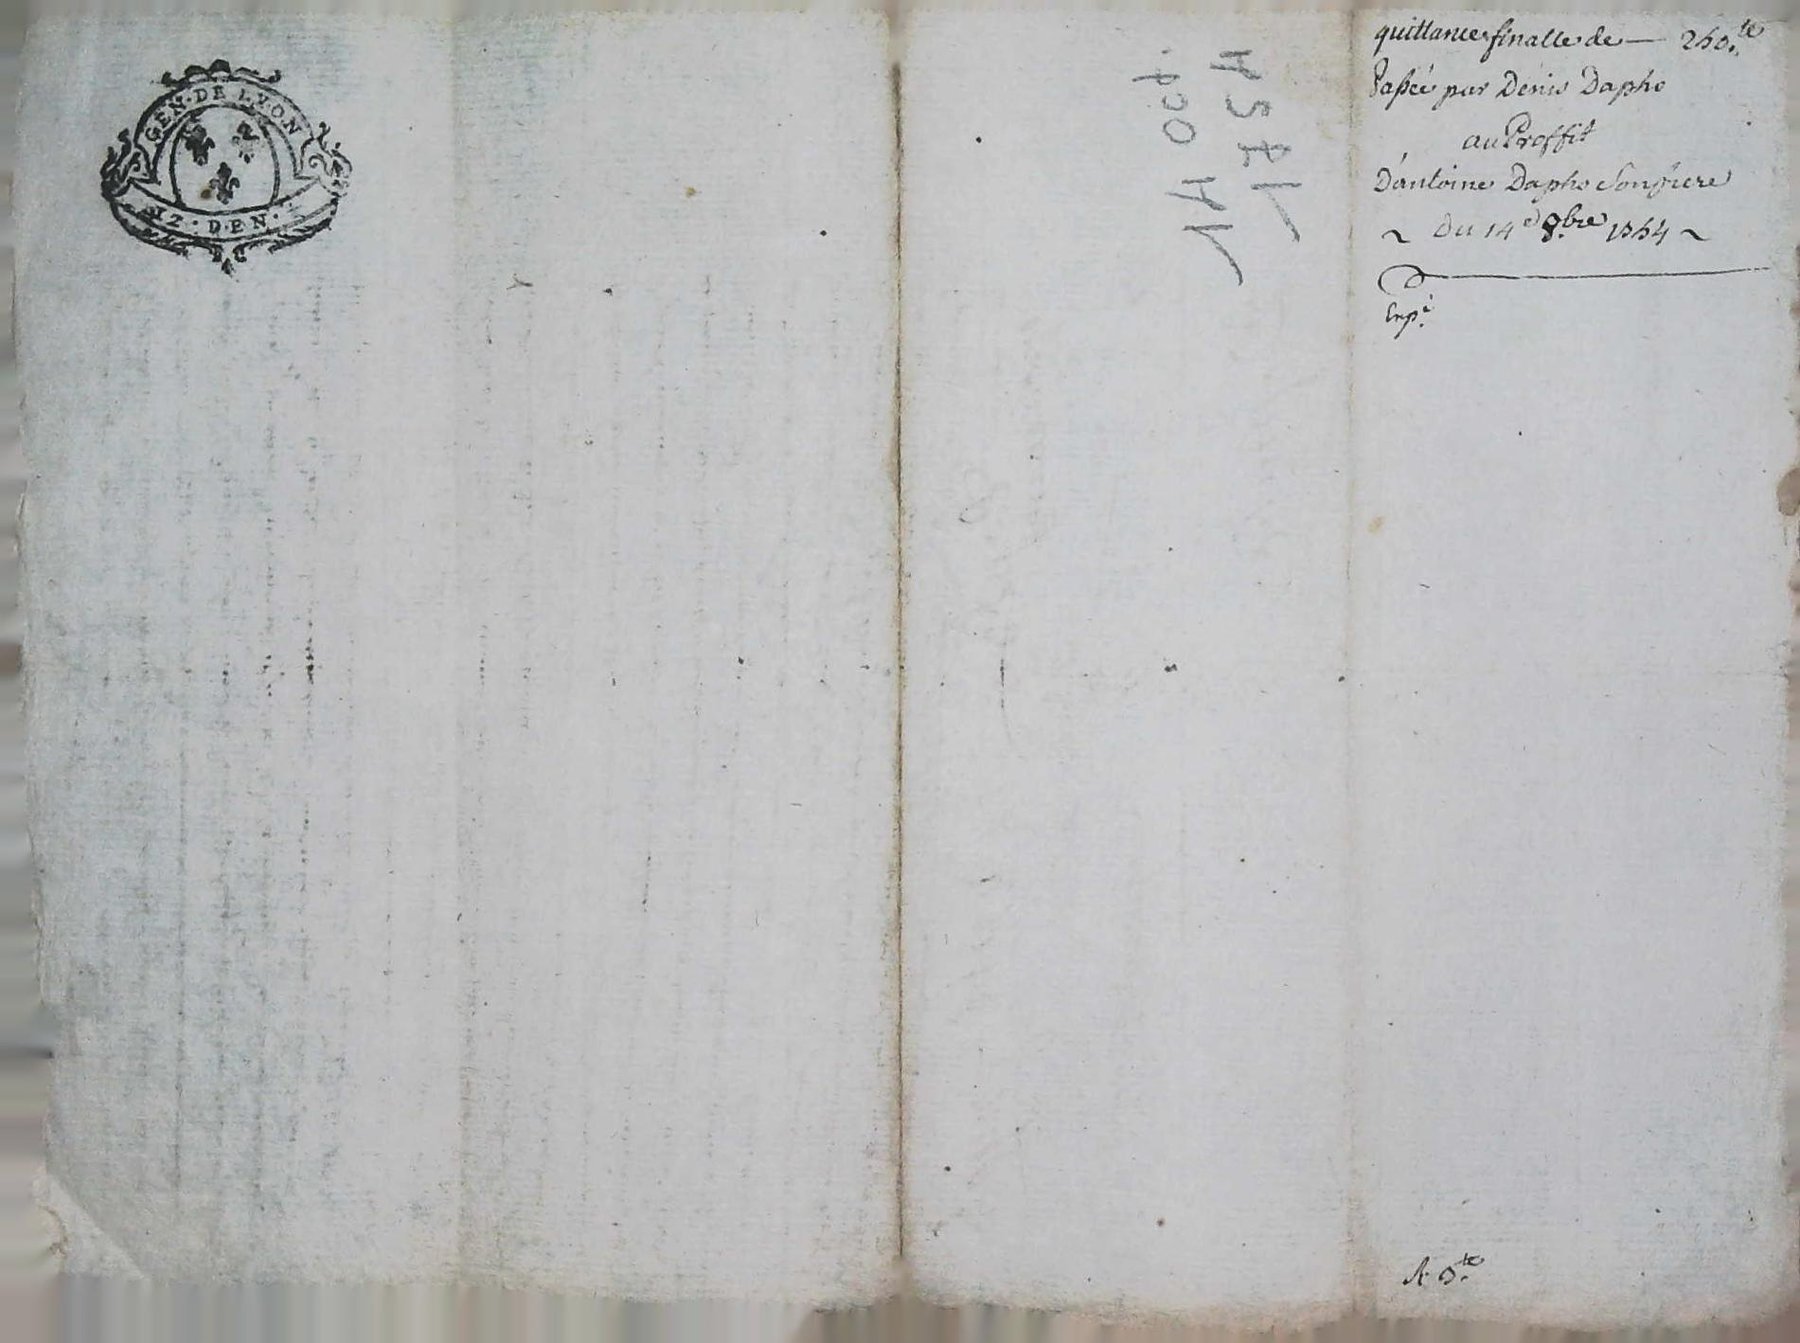 GEN·DE LYON
DEN·
quittance finalle de — 260.te
Passée par Denis Dapho
au Proffit
D'antoine Dapho Son frere
~ Du 14e 8.bre 1764 ~
Exp.é
1754